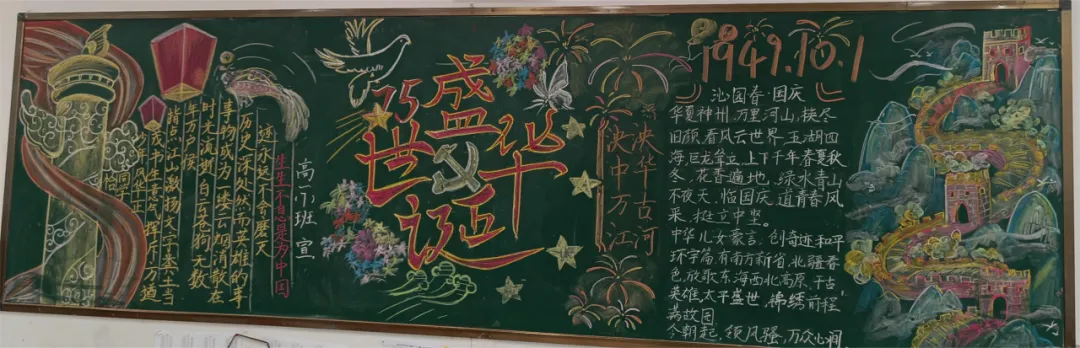 1949.10.1
沁园春·国庆
华夏神州,万里河山,换尽
旧颜,看风云世界,五湖四
海,巨龙耸立,上下千年,春夏秋
冬,花香遍地,绿水青山
不夜天,临国庆,道青春风
采,松立中坚。
中华儿女豪言,创奇迹和平
环宇前,有南方新省,北疆春
色,放歌东海,西北高原,千古
英雄,太平盛世,锦绣前程
荡故园
今朝起,领风骚,万众心
75
盛世华诞
泱泱华古河
泱中万江
高一 班 宣
生生不息是为中国
迹永远不会磨灭
历史深处,然而英雄的事
事物成为一缕云烟消散在
时光流逝,白云苍狗,无数
年万户侯
指点江山,激扬文字,粪土当
茂,书生意气,挥斥方遒
恰同学少年,风华正